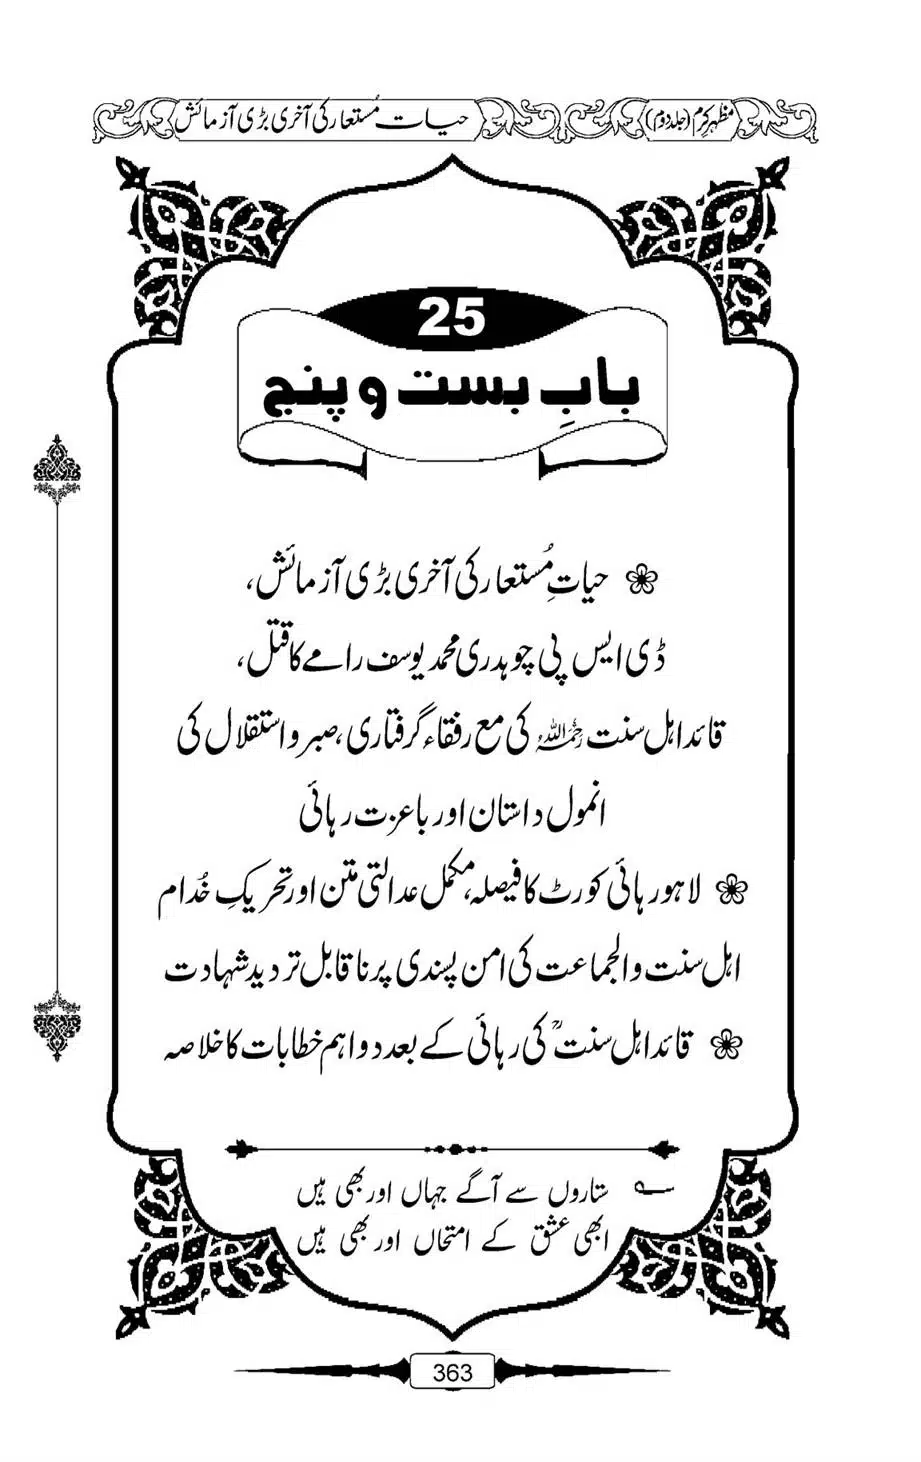 مظہرِکرم (جلد دوم)
حیات مُستعار کی آخری بڑی آزمائش
25
بابِ بست و پنج
حیاتِ مُستعار کی آخری بڑی آزمائش،
ڈی ایس پی چوہدری محمد یوسف رامے کا قتل،
قائد اہل سنت رحمہ اللہ کی مع رفقاء گرفتاری، صبر و استقلال کی
انمول داستان اور باعزت رہائی
لاہور ہائی کورٹ کا فیصلہ، مکمل عدالتی متن اور تحریکِ خُدام
اہل سنت والجماعت کی امن پسندی پر ناقابل تردید شہادت
قائد اہل سنتؒ کی رہائی کے بعد دو اہم خطابات کا خلاصہ
ستاروں سے آگے جہاں اور بھی ہیں
ابھی عشق کے امتحاں اور بھی ہیں
363